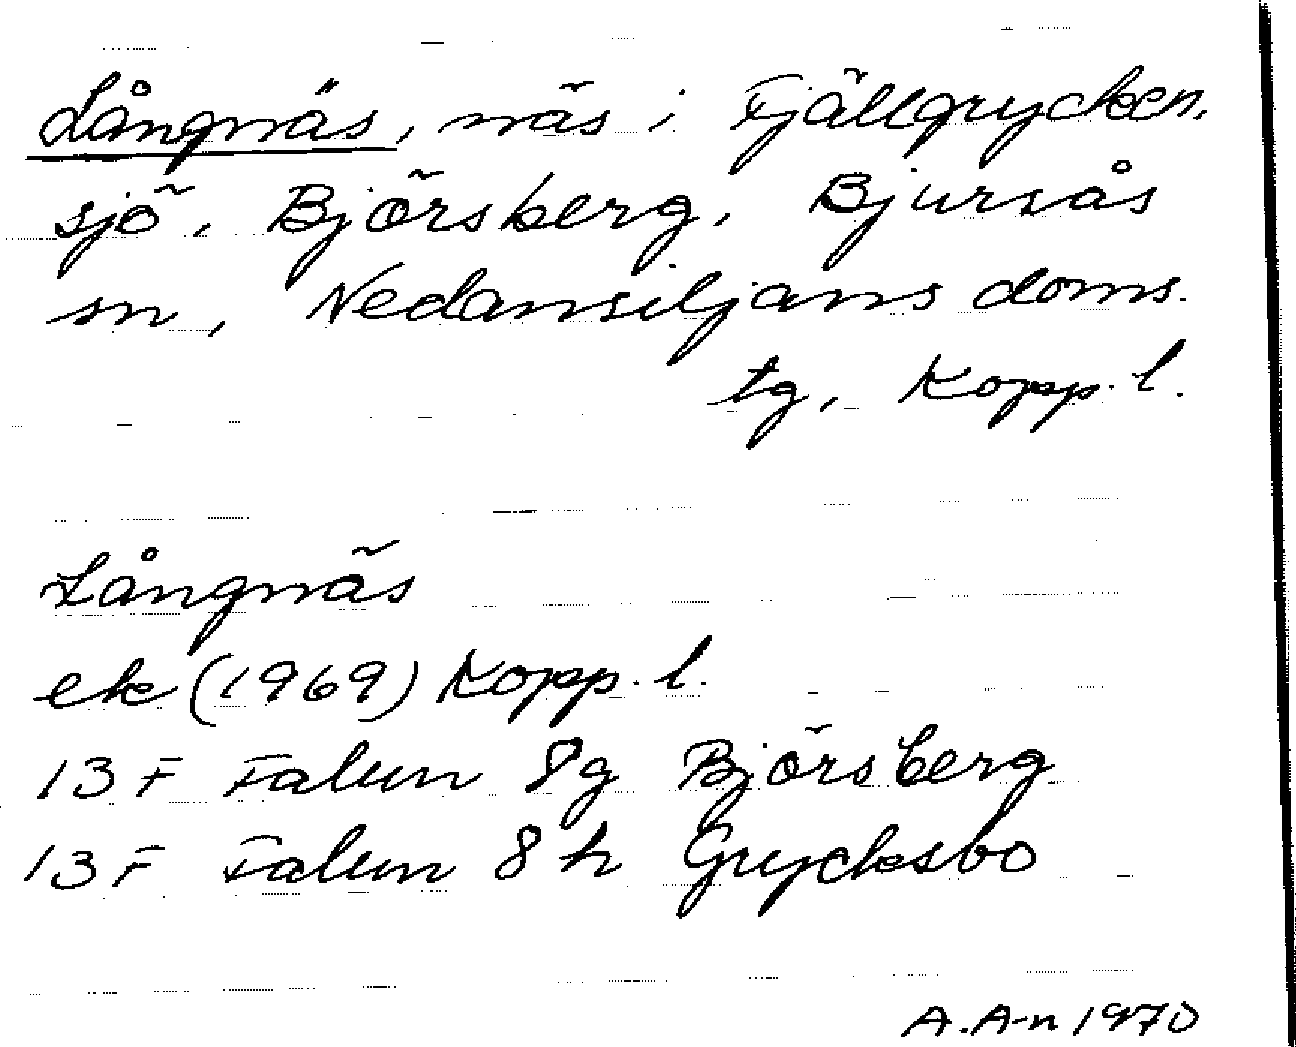 Långnäs, näs i Fjällgrycken,
sjö, Björsberg, Bjursås
sn, Nedansiljans doms.
tg, Kopp. l.
Långnäs
ek (1969) Kopp. l.
13 F Falun 8g Björsberg
13 F Falun 8h Grycksbo
A.A-n 1970